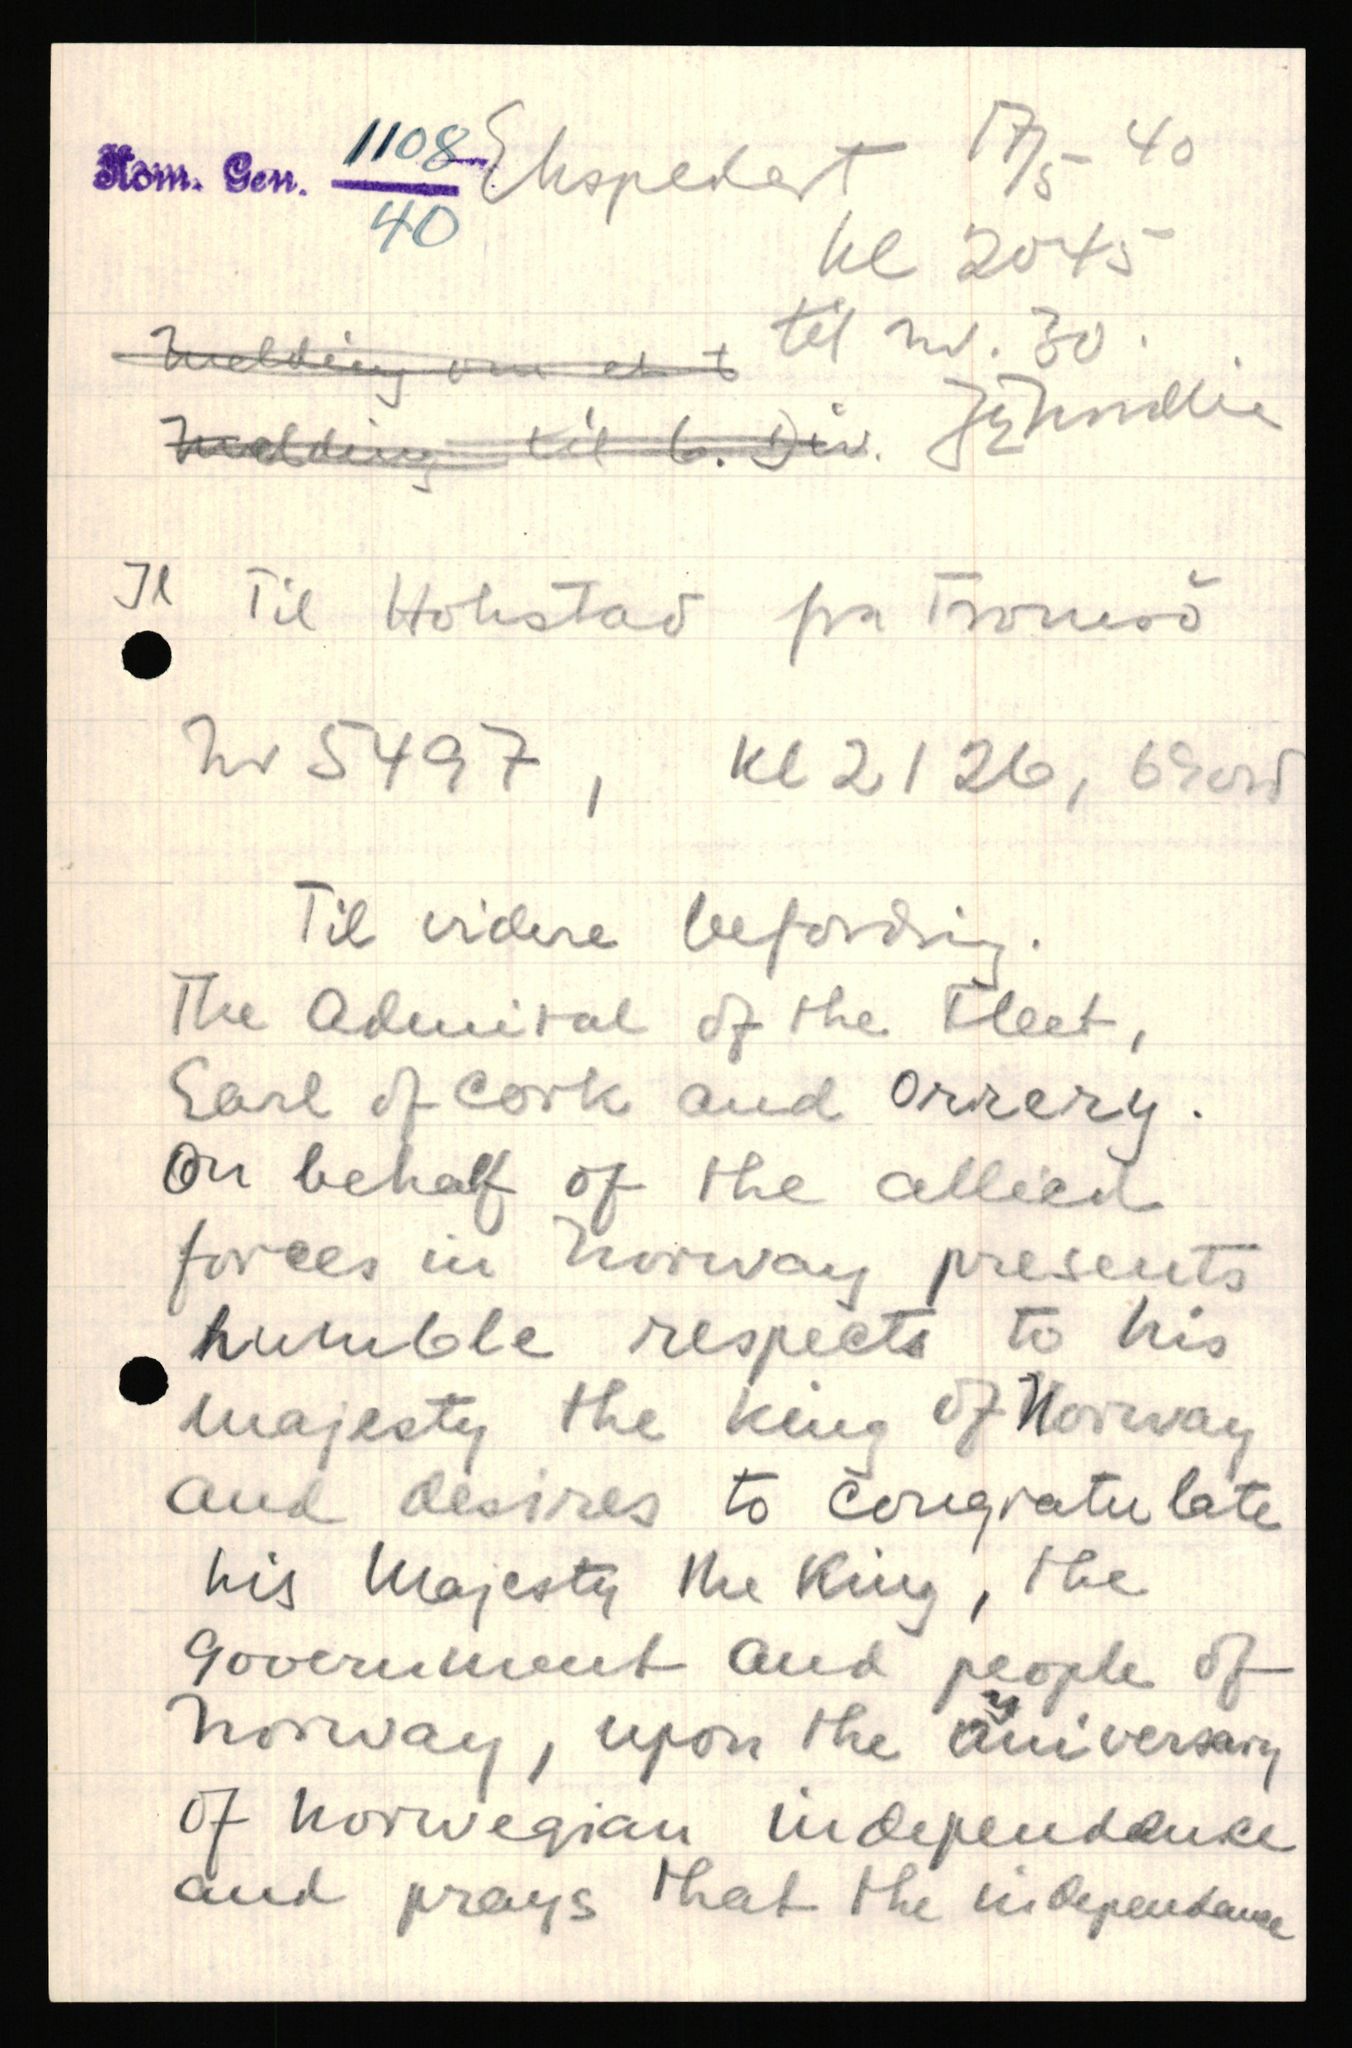 Kom. Gen. 1108
40
Ekspedert 17/5 40
kl 2045
til nr. 30.
Melding om at
Melding til 6. Div.
Il Til Hokstad fra Tromsö
Nr 5497, kl 2126, 69 ord
Til videre befordring.
The Admiral of the Fleet,
Earl of Cork and Orrery.
On behalf of the allied
forces in Norway presents
humble respects to his
majesty the King of Norway
and desires to congratulate
his Majesty the King, the
Government and people of
Norway, upon the aniversary
of Norwegian independance
and prays that the independance